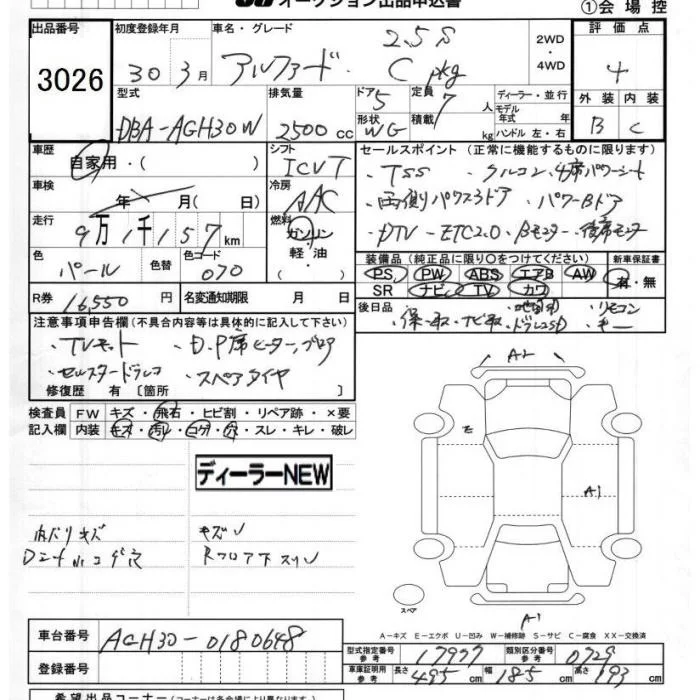 オークション出品申込書
①会場控
出品番号 初度登録年月 車名・グレード 2WD・4WD 評価点
3026
30 3月 アルファード 2.5 S C pkg
4
外装 内装
B C
型式 排気量 ドア 定員 人 ディーラー・並行
DBA-AGH30W 2500cc 5 7
形状 積載 kg モデル年式 年式
WG ハンドル 左・右
車歴 シフト セールスポイント (正常に機能するものに限ります)
自家用・( ) ICVT
・TSS ・クルコン・4席パワーシート
車検 年 月(日) 冷房 AAC
・両側パワスラドア ・パワーBドア
走行 9万1千157km 燃料 ガソリン・軽油( )
・DTV・ETC2.0・Bモニター・後席モニター
色 パール 色替 色コード 070
装備品(純正品に限り○をつけてください) 新車保証書
PS PW ABS エアB AW
SR ナビ TV カワ
有・無
R券 16,550円 名変通知期限 月 日
後日品 ・保・取・ナビ取・ドラレコSD ・リモコン ・キー
注意事項申告欄(不具合内容等は具体的に記入して下さい)
・TVキット ・D.P席ヒーター,ブロア
・セルスタードラレコ ・スペアタイヤ
修復歴 有〔箇所 〕
検査員記入欄 FW キズ・飛石・ヒビ割・リペア跡・×要
内装 キズ・汚レ・コゲ・穴・スレ・キレ・破レ
ディーラーNEW
内バリキズ キズ
Dシートコゲ穴 Rフロア下スリ
A2
E
A1
スペア
A1
A-キズ E-エクボ U-凹み W-補修跡 S-サビ C-腐食 XX-交換済
車台番号 AGH30-0180648
型式指定番号 参考 17977 類別区分番号 参考 0729
登録番号
車庫証明用 参考 長さ 495cm 幅 185cm 高さ 193cm
希望出品コーナー